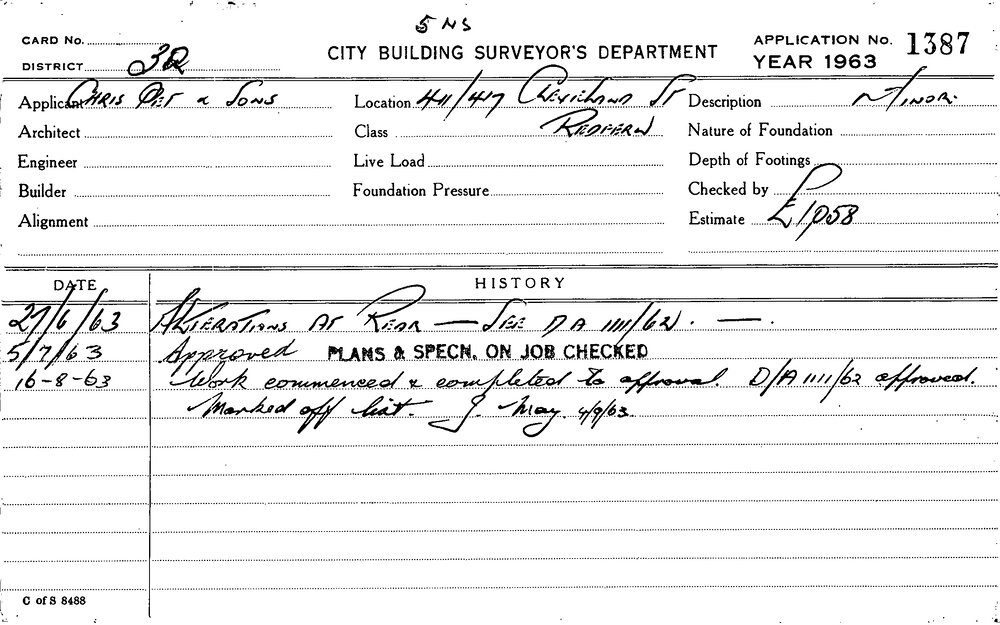 5 NS
CARD No.
CITY BUILDING SURVEYOR'S DEPARTMENT
APPLICATION No. 1387
DISTRICT 3R
YEAR 1963
Applicant Chris & Sons
Location 411/417 Cleveland St
Description Minor.
Architect
Class Redfern
Nature of Foundation
Engineer
Live Load
Depth of Footings
Builder
Foundation Pressure
Checked by
Alignment
Estimate £1,058
DATE
HISTORY
27/6/63 Alterations at Rear — See DA 1111/62. —.
5/7/63 Approved PLANS & SPECN. ON JOB CHECKED
16-8-63 Work commenced & completed to approval. D/A 1111/62 approved.
Marked off list. J. May. 4/9/63.
C of S 8488